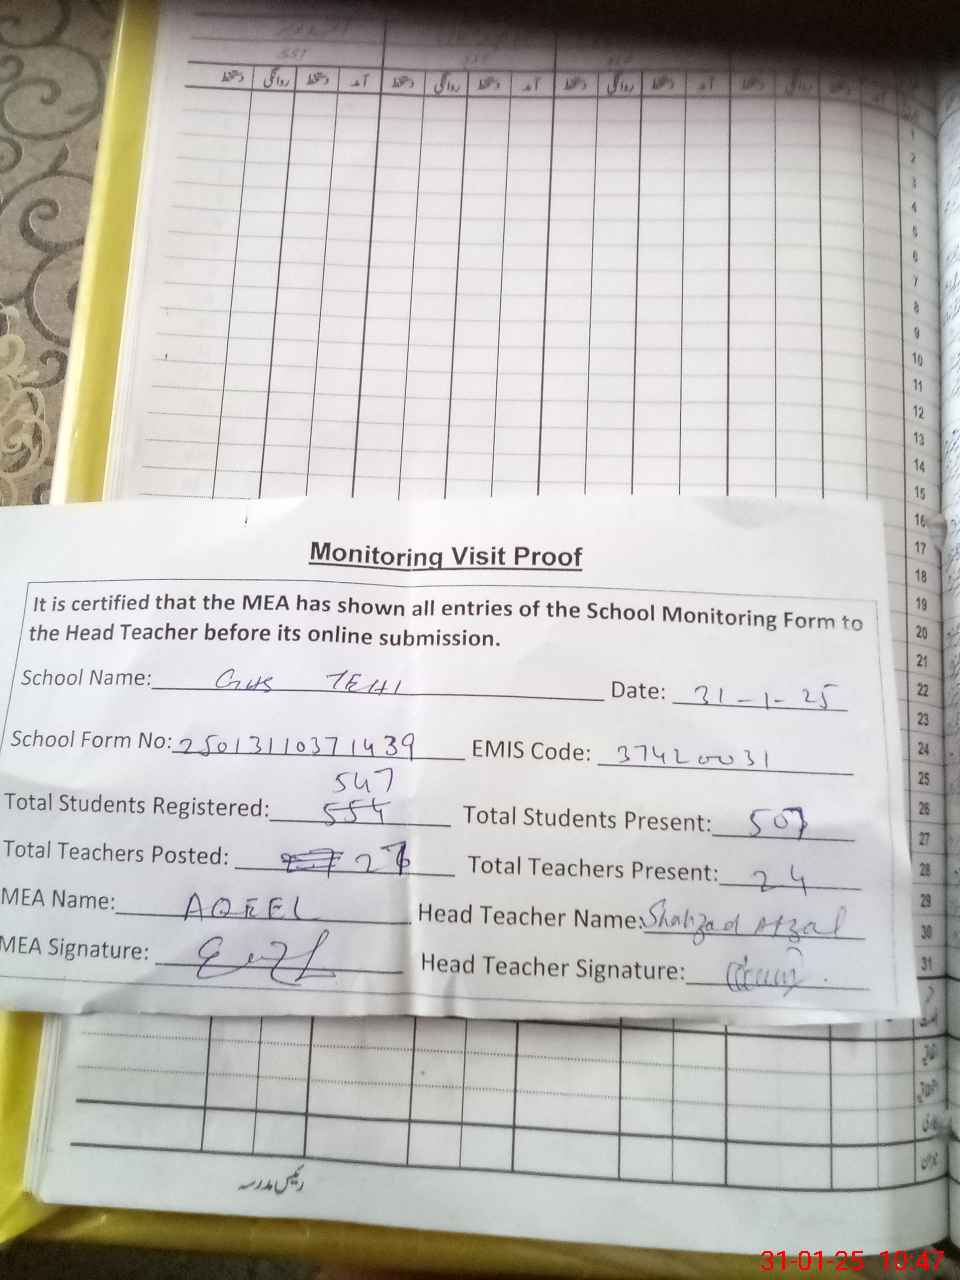 دستخط روانگی دستخط آمد دستخط روانگی دستخط آمد دستخط روانگی دستخط آمد دستخط روانگی دستخط آمد
1
2
3
4
5
6
7
8
9
10
11
12
13
14
15
16
17
18
19
20
21
22
23
24
25
26
27
28
29
30
31
Monitoring Visit Proof
It is certified that the MEA has shown all entries of the School Monitoring Form to
the Head Teacher before its online submission.
School Name: GHS TEHI Date: 31-1-25
School Form No: 25013110371439 EMIS Code: 37420031
547
Total Students Registered: 554 Total Students Present: 507
Total Teachers Posted: Total Teachers Present: 24
MEA Name: AQEEL Head Teacher Name: Shahzad Afzal
MEA Signature: Head Teacher Signature:
رئیس مدرسہ
31-01-25 10:47